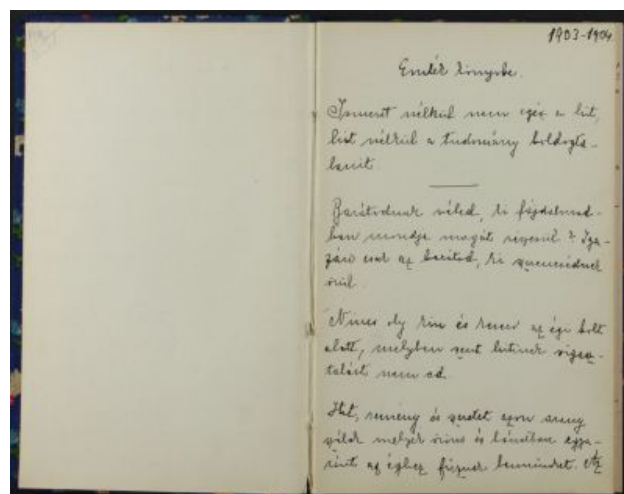 1903-1904
Emlék könyvbe.
Ismeret nélkül nem egész a hit,
hit nélkül a tudomány boldogta-
lanit
Barátodnak véled, ki fájdalmad-
ban mondja magát részesül? Iga-
zán csak az barátod, ki szerencsédnek
örül
Nincs oly kín és az égi bolt
alatt, melyben szent hitünk vigasz-
talást nem ad.
Hit, remény és szeretet azon arany
melyek öröm és bánatban egya-
ránt az éghez fűznek bennünket. Az